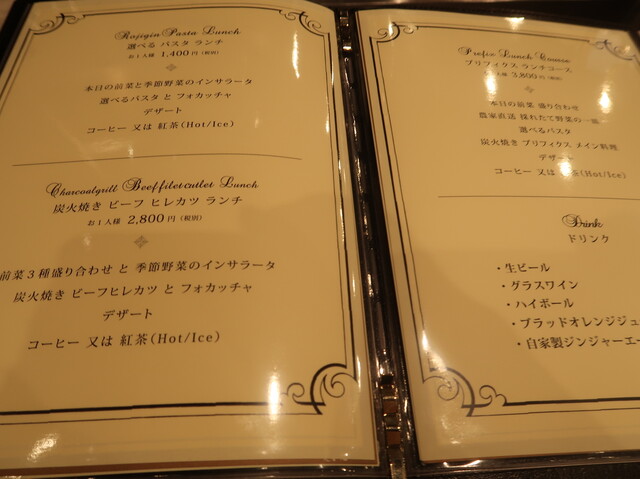 Rajigin Pasta Lunch
選べる パスタ ランチ
お1人様 1,400円（税別）
本日の前菜と季節野菜のインサラータ
選べるパスタ と フォカッチャ
デザート
コーヒー 又は 紅茶(Hot/Ice)
Charcoalgrill Beeffiletcutlet Lunch
炭火焼き ビーフ ヒレカツ ランチ
お1人様 2,800円（税別）
前菜3種盛り合わせ と 季節野菜のインサラータ
炭火焼き ビーフヒレカツ と フォカッチャ
デザート
コーヒー 又は 紅茶(Hot/Ice)
Prefix Lunch Course
プリフィクス ランチコース
お1人様 3,800円（税別）
本日の前菜 盛り合わせ
農家直送 採れたて野菜の一皿
選べるパスタ
炭火焼き プリフィクス メイン料理
デザート
コーヒー 又は 紅茶(Hot/Ice)
Drink
ドリンク
・生ビール
・グラスワイン
・ハイボール
・ブラッドオレンジジュ
・自家製ジンジャーエー